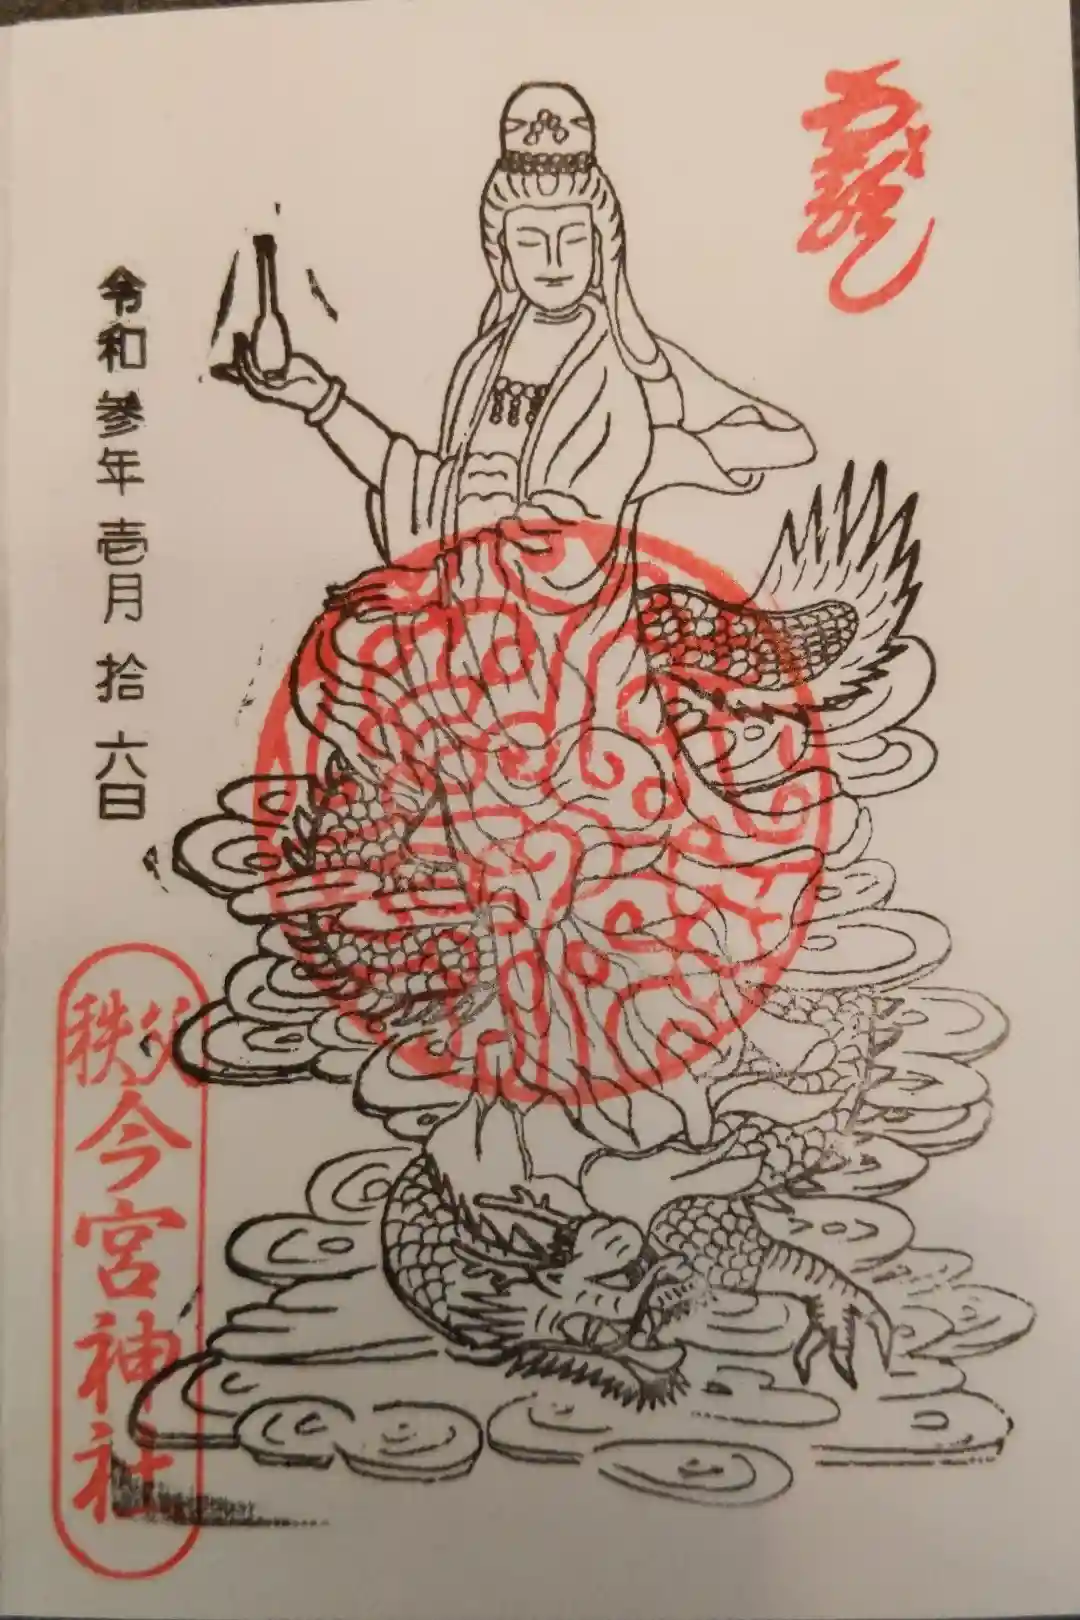 令和参年壱月拾六日
秩父
今宮神社